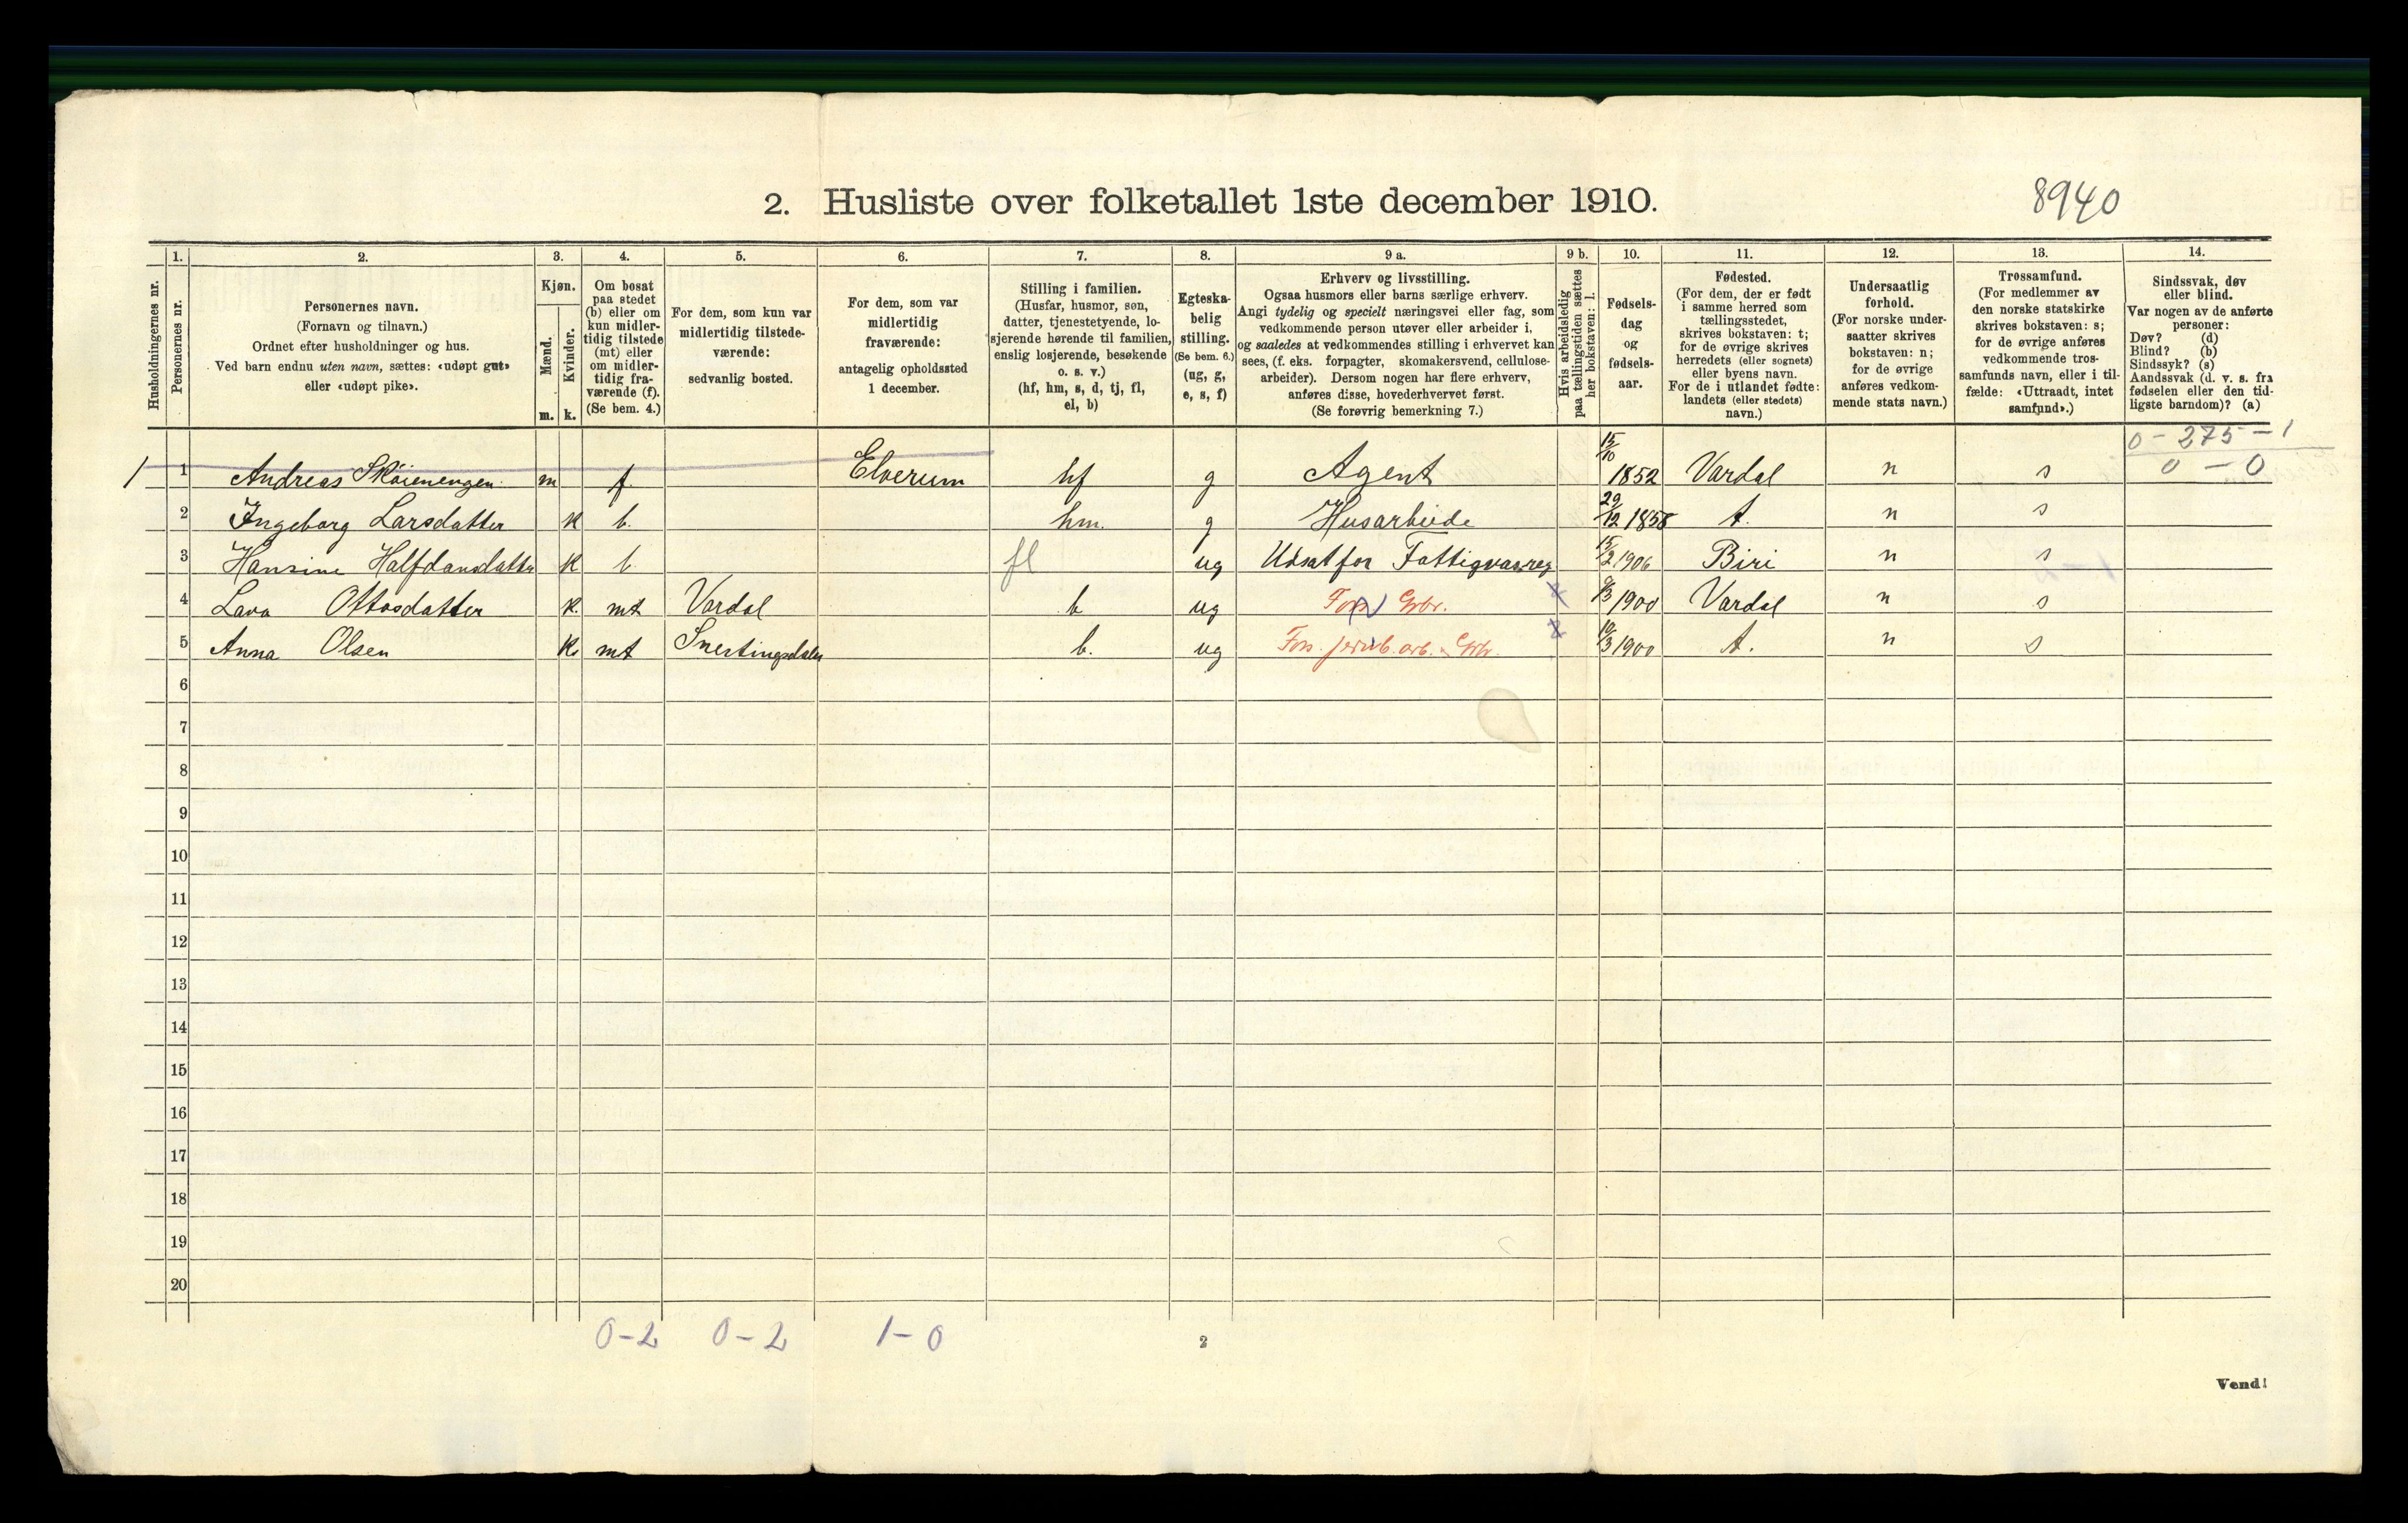 2. Husliste over folketallet 1ste december 1910.
8940
1. 2. 3. 4. 5. 6. 7. 8. 9 a. 9 b. 10. 11. 12. 13. 14.
Husholdningernes nr.
Personernes nr.
Personernes navn.
(Fornavn og tilnavn.)
Ordnet efter husholdninger og hus.
Ved barn endnu uten navn, sættes: «udøpt gut»
eller «udøpt pike».
Kjøn.
Mænd.
Kvinder.
m. k.
Om bosat
paa stedet
(b) eller om
kun midler-
tidig tilstede
(mt) eller
om midler-
tidig fra-
værende (f).
(Se bem. 4.)
For dem, som kun var
midlertidig tilstede-
værende:
sedvanlig bosted.
For dem, som var
midlertidig
fraværende:
antagelig opholdssted
1 december.
Stilling i familien.
(Husfar, husmor, søn,
datter, tjenestetyende, lo-
sjerende hørende til familien,
enslig losjerende, besøkende
o. s. v.)
(hf, hm, s, d, tj, fl,
el, b)
Egteska-
belig
stilling.
(Se bem. 6.)
(ug, g,
e, s, f)
Erhverv og livsstilling.
Ogsaa husmors eller barns særlige erhverv.
Angi tydelig og specielt næringsvei eller fag, som
vedkommende person utøver eller arbeider i,
og saaledes at vedkommendes stilling i erhvervet kan
sees, (f. eks. forpagter, skomakersvend, cellulose-
arbeider). Dersom nogen har flere erhverv,
anføres disse, hovederhvervet først.
(Se forøvrig bemerkning 7.)
Hvis arbeidsledig
paa tællingstiden sættes
her bokstaven: l.
Fødsels-
dag
og
fødsels-
aar.
Fødested.
(For dem, der er født
i samme herred som
tællingsstedet,
skrives bokstaven: t;
for de øvrige skrives
herredets (eller sognets)
eller byens navn.
For de i utlandet fødte:
landets (eller stedets)
navn.)
Undersaatlig
forhold.
(For norske under-
saatter skrives
bokstaven: n;
for de øvrige
anføres vedkom-
mende stats navn.)
Trossamfund.
(For medlemmer av
den norske statskirke
skrives bokstaven: s;
for de øvrige anføres
vedkommende tros-
samfunds navn, eller i til-
fælde: «Uttraadt, intet
samfund».)
Sindssvak, døv
eller blind.
Var nogen av de anførte
personer:
Døv? (d)
Blind? (b)
Sindssyk? (s)
Aandssvak (d. v. s. fra
fødselen eller den tid-
ligste barndom)? (a)
0 - 275 - 1
0 - 0
1 1 Andreas Skøienengen m f. Elverum hf g Agent 15/10 1852 Vardal n s
2 Ingeborg Larsdatter k b. hm. g Husarbeide 29/12 1858 t. n s
3 Hansine Halfdansdatter k b fl ug Udsat for Fattigvæsen 15/2 1906 Biri n s
4 Lava Ottosdatter k. mt Vardal b ug Fors. Grbr. 9/3 1900 Vardal n s
5 Anna Olsen k. mt Snertingsdalen b. ug Fors. jernb. arb. Grbr. 10/3 1900 t. n s
6
7
8
9
10
11
12
13
14
15
16
17
18
19
20
0-2 0-2 1-0
2
Vend!